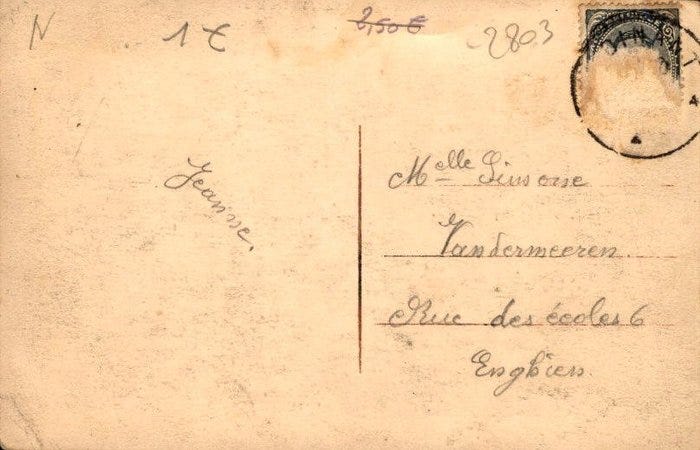 N
1 €
2,50 €
2803
DINANT
Jeanne.
Melle Simone
Vandermeeren
Rue des écoles 6
Enghien